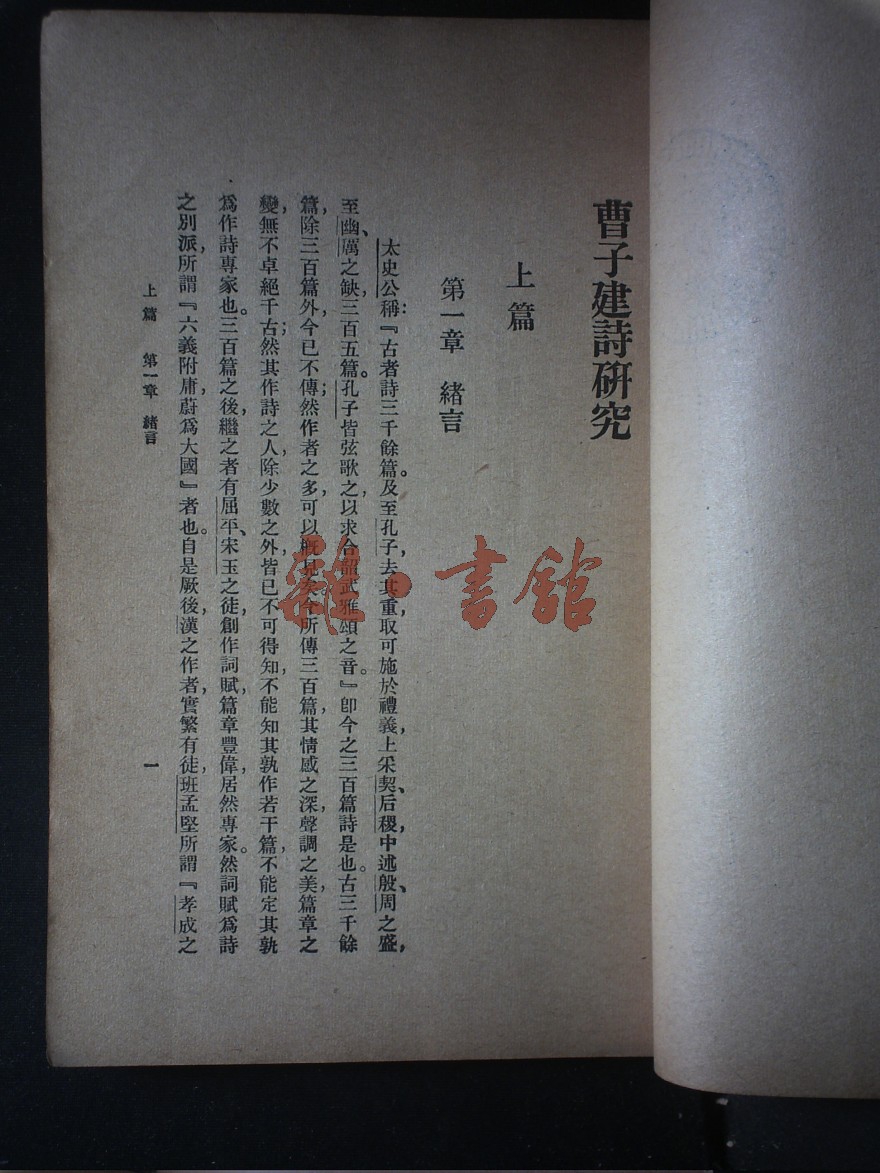 曹子建詩研究
上篇
第一章　緒言
太史公稱：『古者詩三千餘篇。及至孔子，去其重，取可施於禮義，上采契、后稷，中述殷、周之盛，
至幽、厲之缺，三百五篇。孔子皆弦歌之，以求合韶武雅頌之音。』卽今之三百篇詩是也。古三千餘
篇，除三百篇外，今已不傳；然作者之多，可以概見矣。今所傳三百篇，其情感之深，聲調之美，篇章之
變，無不卓絕千古；然其作詩之人，除少數之外，皆已不可得知，不能知其孰作若干篇，不能定其孰
爲作詩專家也。三百篇之後，繼之者有屈平、宋玉之徒，創作詞賦，篇章豐偉，居然專家。然詞賦爲詩
之別派，所謂『六義附庸，蔚爲大國』者也。自是厥後，漢之作者，實繁有徒，班孟堅所謂『孝成之
上篇　第一章　緒言
一
雜·書館